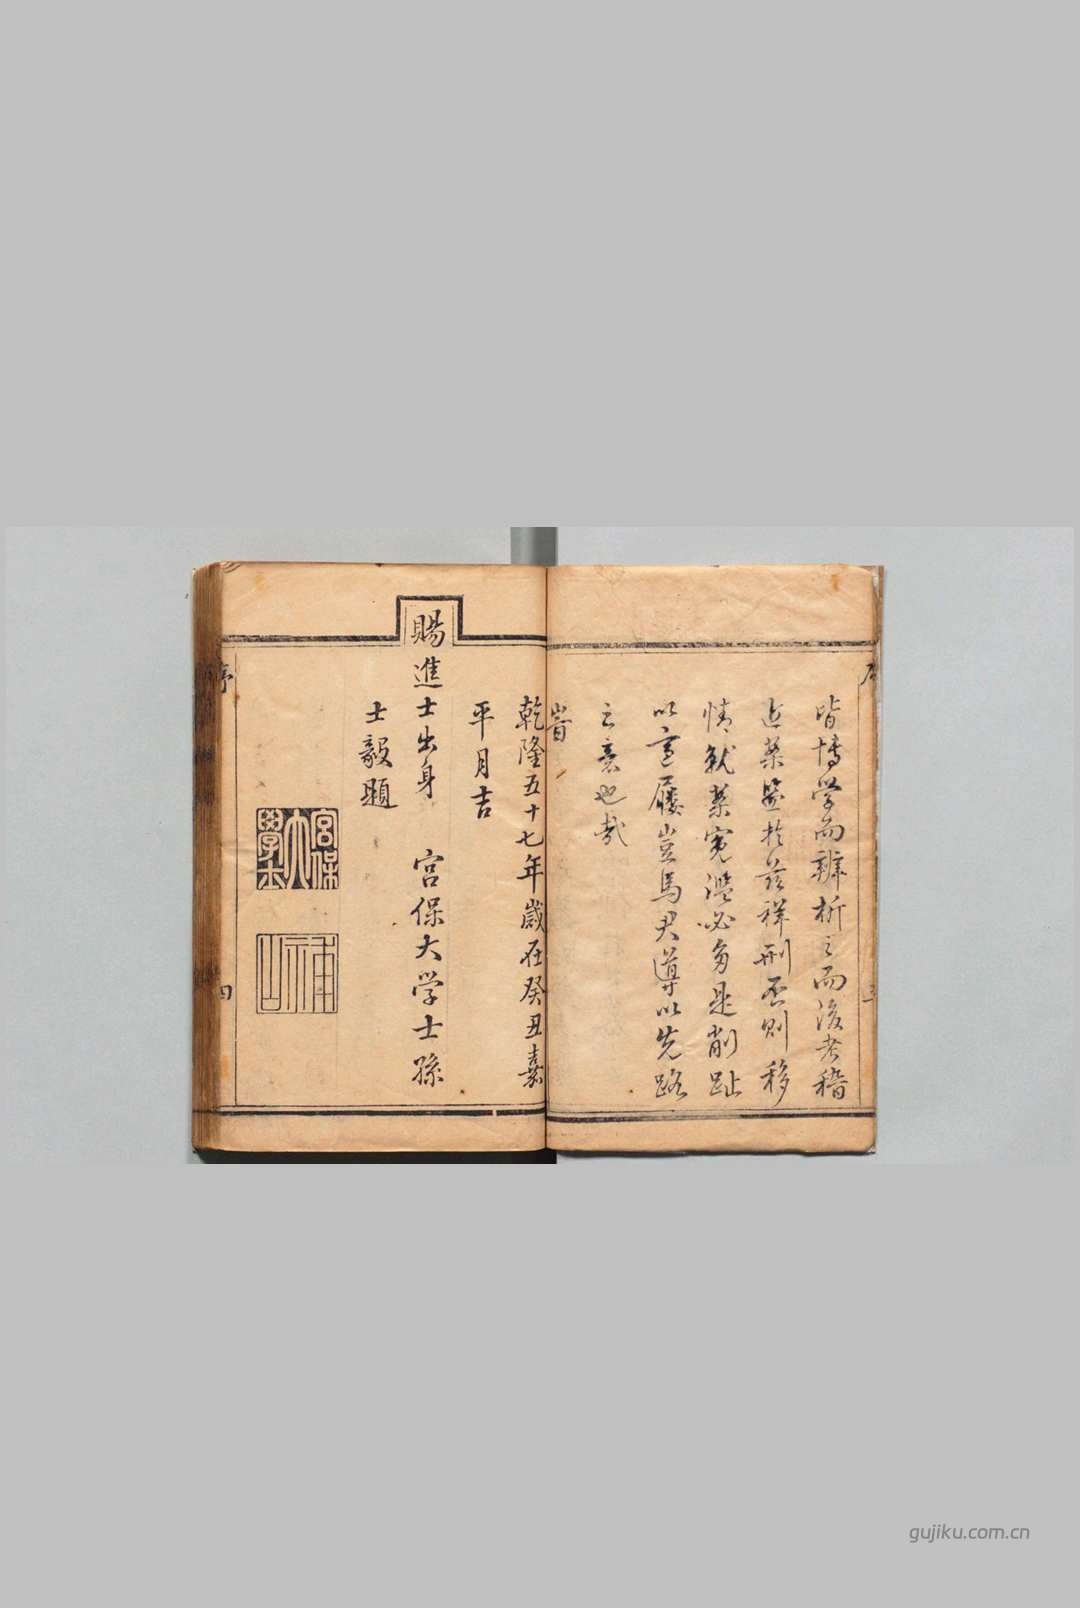 皆博学而辨析之而後考稽
近案鉴於茲祥刑否則移
情就案冤濫必多是削趾
以適屨豈馬君導以先路
之意也哉
旹
乾隆五十七年歲在癸丑嘉
平月吉
賜進士出身 宮保大学士孫
士毅題
宮保大學士
補山
序
三
序
四
gujiku.com.cn